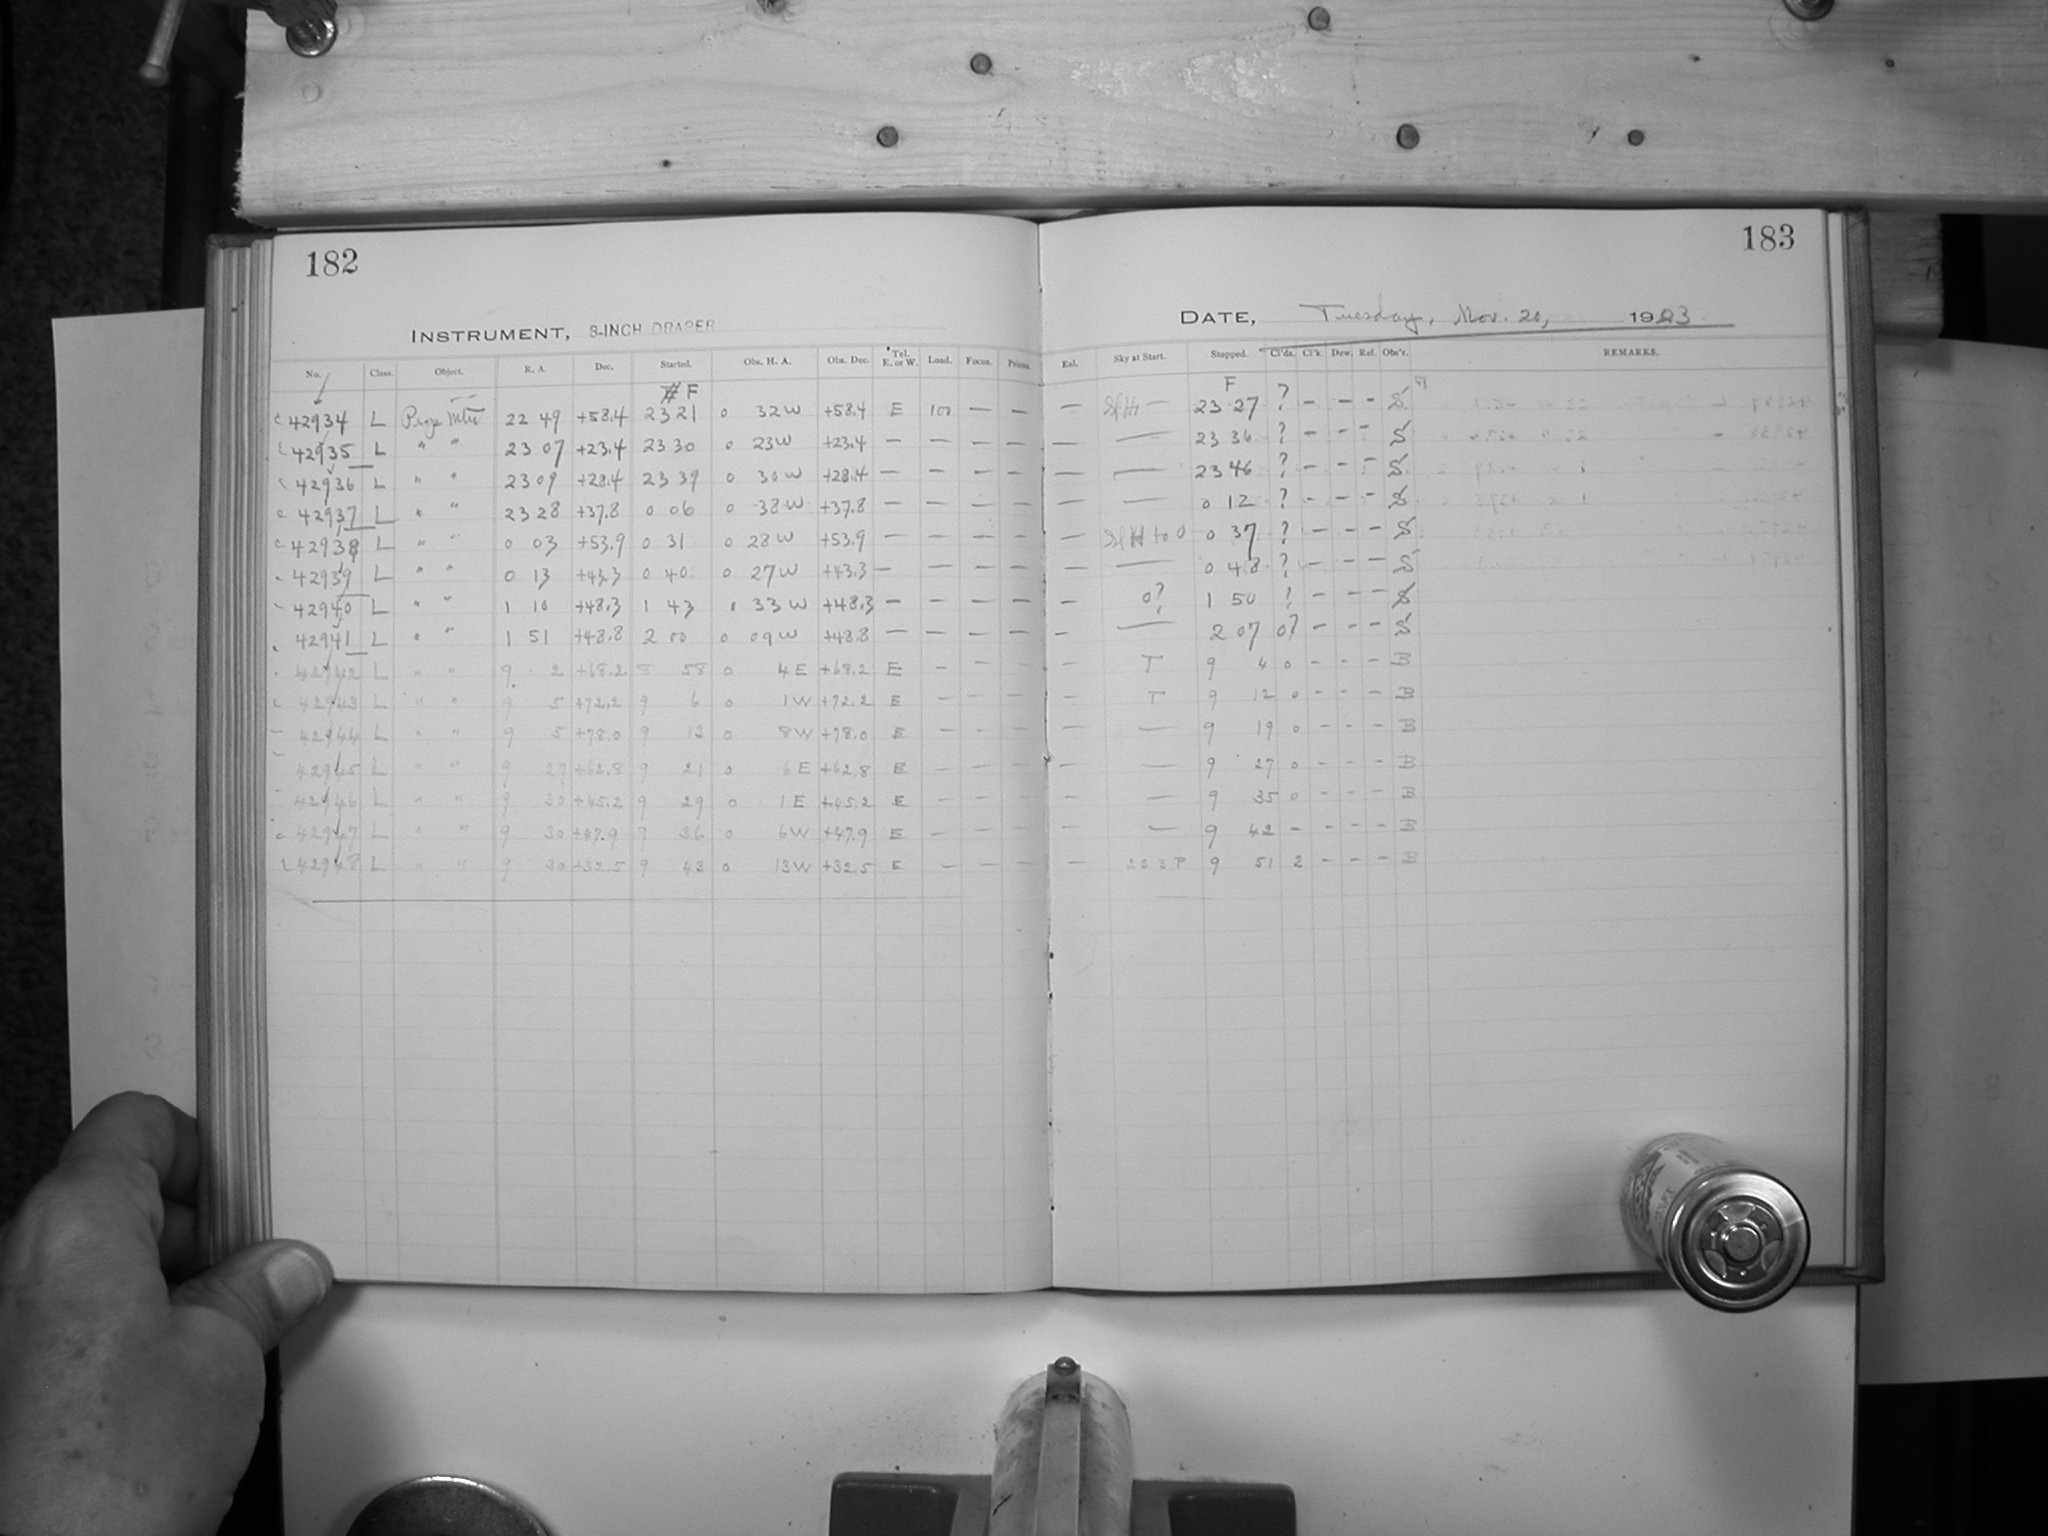 182
INSTRUMENT, 8-INCH DRAPER
No. Class. Object. R. A. Dec. Started. Obs. H. A. Obs. Dec. Tel. E. or W. Load. Focus. Prisms.
F
42934 L 22 49 +58.4 23 21 0 32 W +58.4 E 100 — —
42935 L " " 23 07 +23.4 23 30 0 23 W +23.4 — — — —
42936 L " " 23 09 +28.4 23 39 0 30 W +28.4 — — — —
42937 L " " 23 28 +37.8 0 06 0 38 W +37.8 — — — —
42938 L " " 0 03 +53.9 0 31 0 28 W +53.9 — — — —
42939 L " " 0 13 +43.3 0 40 0 27 W +43.3 — — — —
42940 L " " 1 10 +48.3 1 43 0 33 W +48.3 — — — —
42941 L " " 1 51 +48.8 2 00 0 09 W +48.8 — — — —
42942 L " " 9 2 +68.2 8 58 0 4 E +68.2 E - - -
42943 L " " 9 5 +72.2 9 6 0 1 W +72.2 E - - -
42944 L " " 9 5 +78.0 9 13 0 8 W +78.0 E - - -
42945 L " " 9 27 +62.8 9 21 0 6 E +62.8 E - - -
42946 L " " 9 30 +45.2 9 29 0 1 E +45.2 E - - -
42947 L " " 9 30 +47.9 9 36 0 6 W +47.9 E - - -
42948 L " " 9 30 +32.5 9 43 0 13 W +32.5 E - - -
183
DATE, Tuesday, Nov. 20, 1923
Exl. Sky at Start. Stopped. Cl'ds. Cl'k. Dew. Ref. Obs'r. REMARKS.
F
— 23 27 ? - - - S
— — 23 36 ? - - - S
— — 23 46 ? - - - S
— — 0 12 ? - - - S
— 0 37 ? - - - S
— — 0 48 ? - - - S
— 0? 1 50 ? - - - S
— — 2 07 0? - - - S
— T 9 4 0 - - - B
— T 9 12 0 - - - B
— — 9 19 0 - - - B
— — 9 27 0 - - - B
— — 9 35 0 - - - B
— — 9 42 - - - - B
— 9 51 2 - - - B